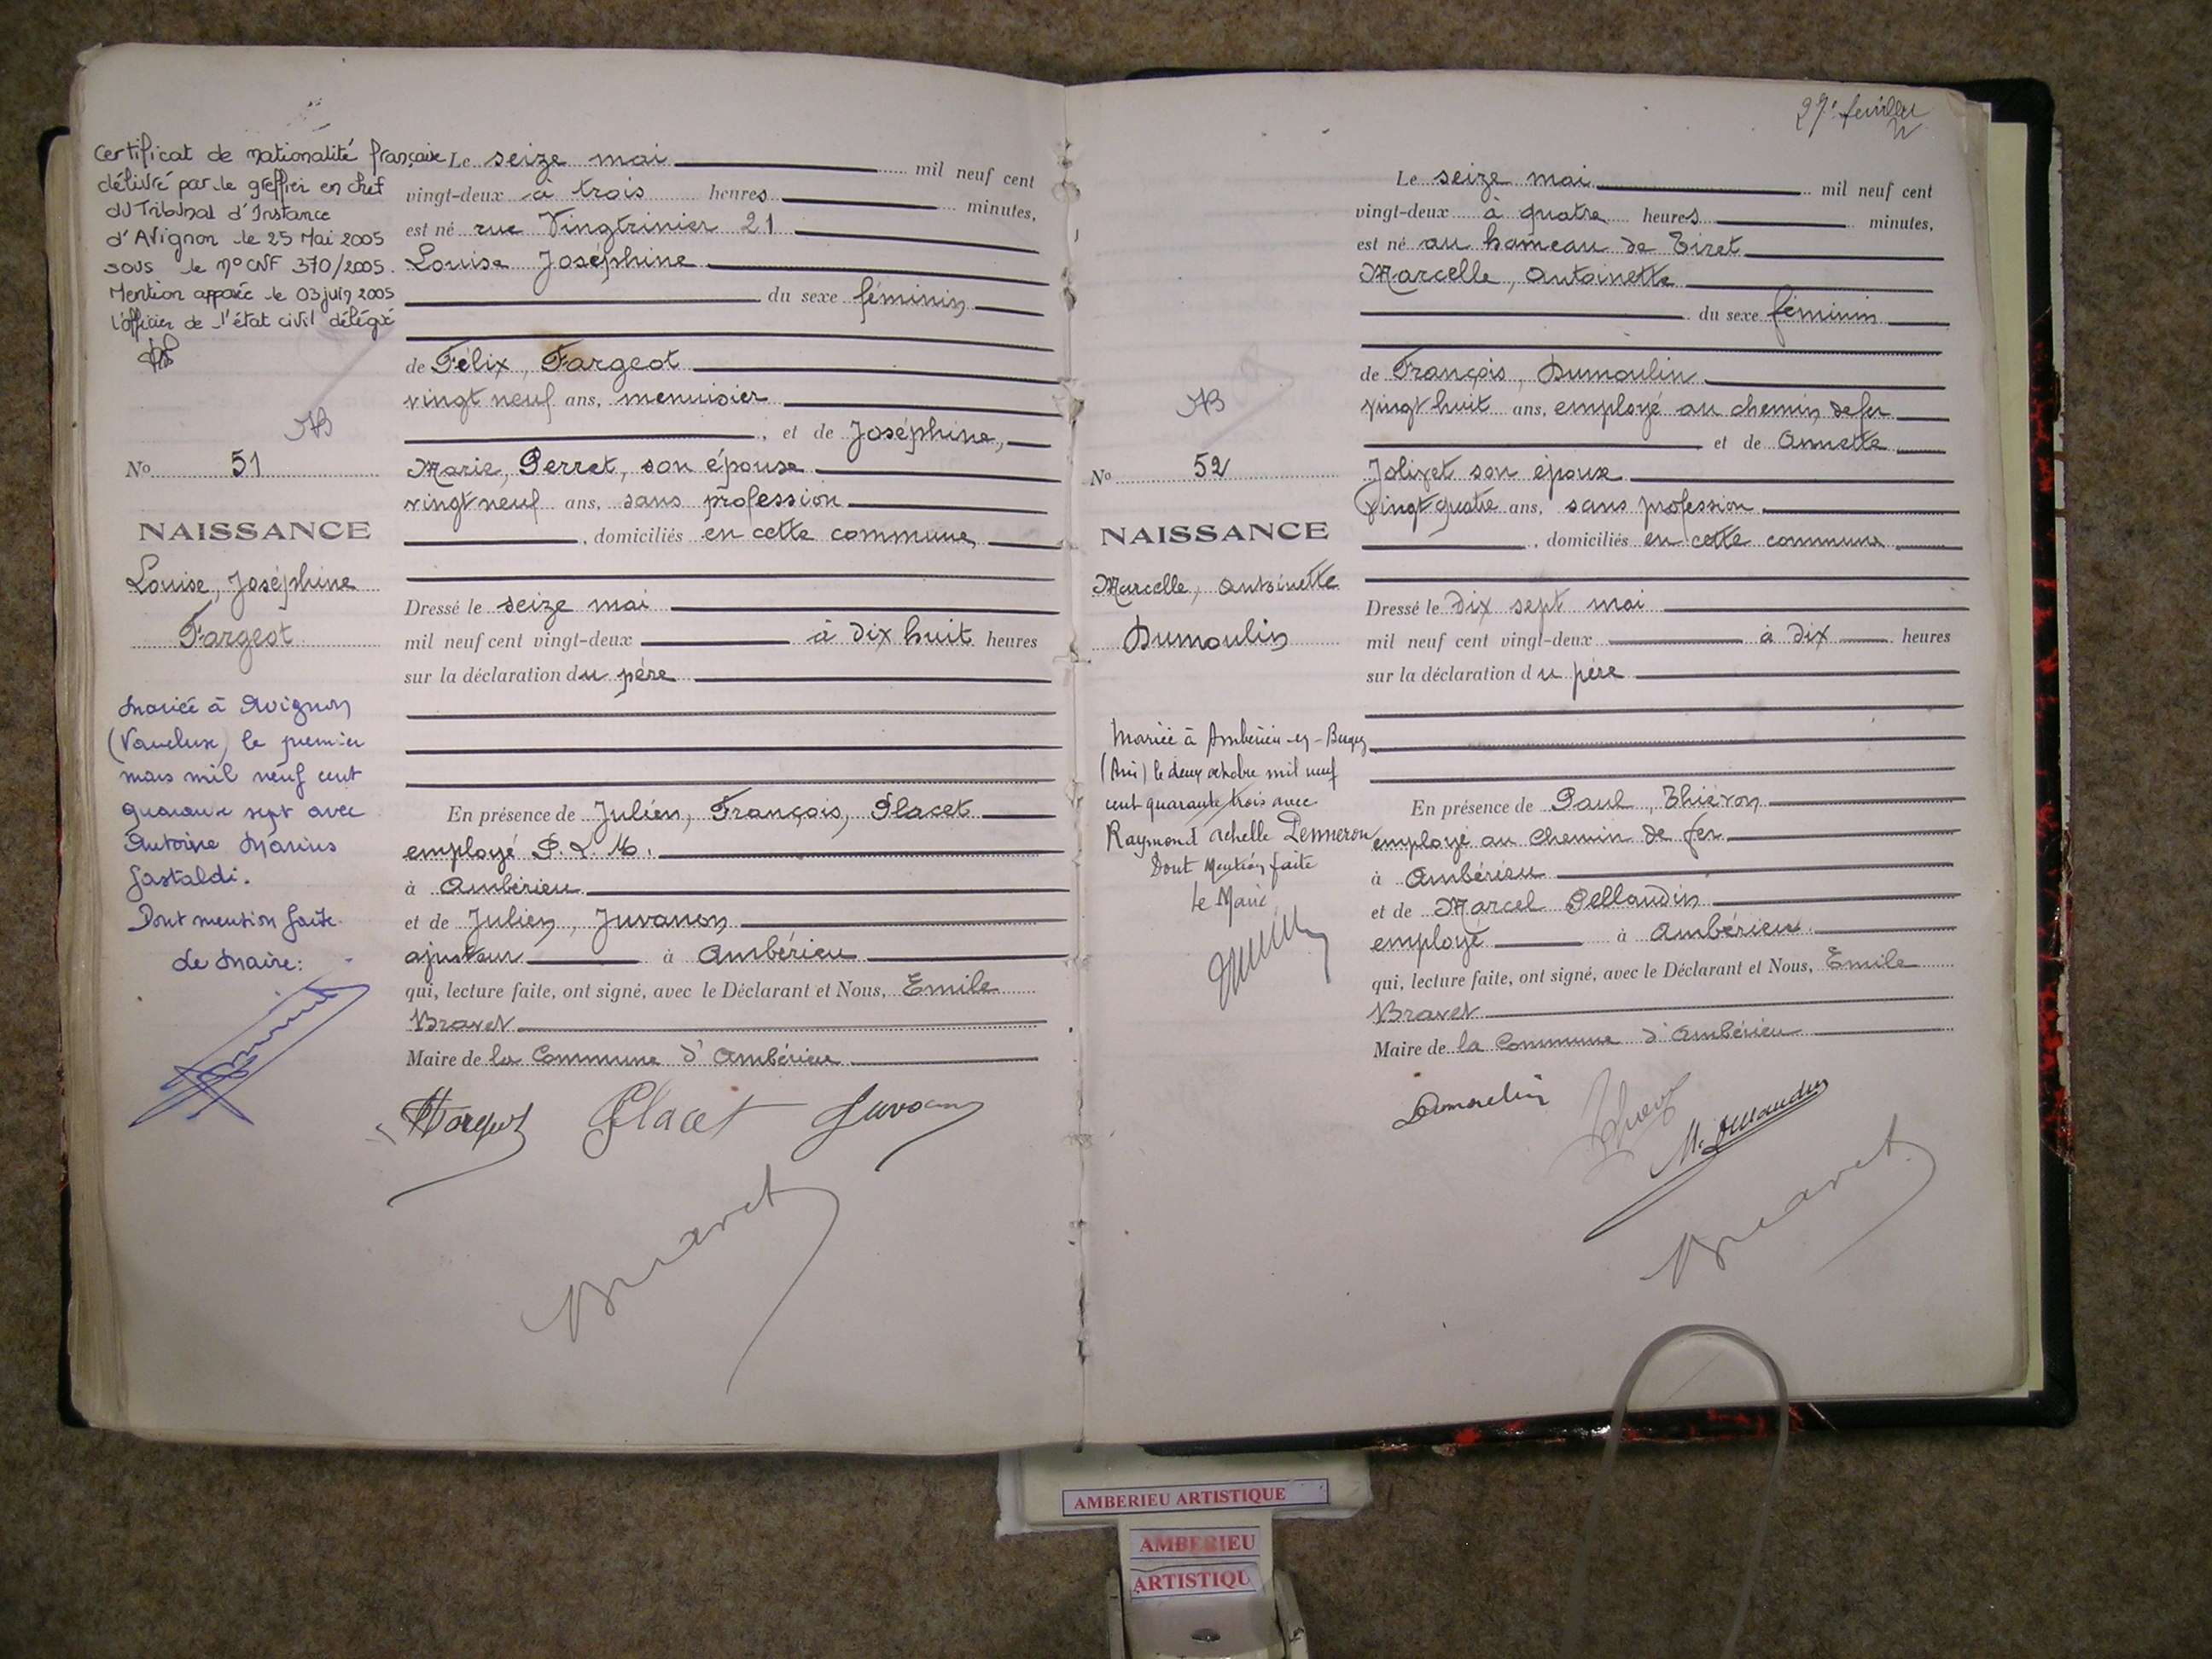 Certificat de nationalité française
délivré par le greffier en chef
du Tribunal d'Instance
d'Avignon le 25 Mai 2005
sous le n° CNF 370/2005.
Mention apposée le 03 juin 2005
l'officier de l'état civil délégué
No 51
NAISSANCE
Louise, Joséphine
Fargeot
Mariée à Avignon
(Vaucluse) le premier
mars mil neuf cent
quarante sept avec
Antoine Marius
Gastaldi.
Dont mention faite.
Le Maire:
Le seize mai mil neuf cent
vingt-deux à trois heures minutes,
est né rue Vingtrinier 21
Louise Joséphine
du sexe féminin
de Félix, Fargeot
vingt neuf ans, menuisier
, et de Joséphine,
Marie, Perret, son épouse
vingt neuf ans, sans profession
, domiciliés en cette commune
Dressé le seize mai
mil neuf cent vingt-deux à dix huit heures
sur la déclaration du père
En présence de Julien, François, Placet
employé P. L. M.
à Ambérieu
et de Julien, Juvanon
ajusteur à Ambérieu
qui, lecture faite, ont signé, avec le Déclarant et Nous, Emile
Bravet
Maire de la Commune d'Ambérieu
Fargeot Placet Juvanon
Bravet
27e feuillet
No 52
NAISSANCE
Marcelle, Antoinette
Dumoulin
Mariée à Ambérieu-en-Bugey
(Ain) le deux octobre mil neuf
cent quarante trois avec
Raymond Achille
Dont Mention faite
Le Maire
Le seize mai mil neuf cent
vingt-deux à quatre heures minutes,
est né au hameau de Tiret
Marcelle, Antoinette
du sexe féminin
de François, Dumoulin
vingt huit ans, employé au chemin de fer
et de Annette
Jolivet son épouse
vingt quatre ans, sans profession
, domiciliés en cette commune
Dressé le dix sept mai
mil neuf cent vingt-deux à dix heures
sur la déclaration du père
En présence de Paul, Thiévon
employé au Chemin de fer
à Ambérieu
et de Marcel Pellaudin
employé à Ambérieu
qui, lecture faite, ont signé, avec le Déclarant et Nous, Emile
Bravet
Maire de la Commune d'Ambérieu
Dumoulin
Bravet
AMBERIEU ARTISTIQUE
AMBERIEU
ARTISTIQU